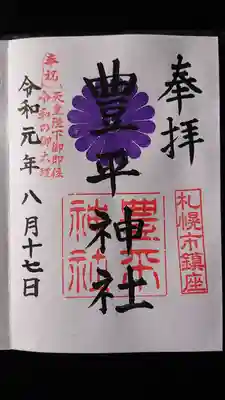 奉拝
札幌市鎮座
豊平神社
豊平
神社
奉祝
天皇陛下御即位
令和の御大礼
令和元年八月十七日